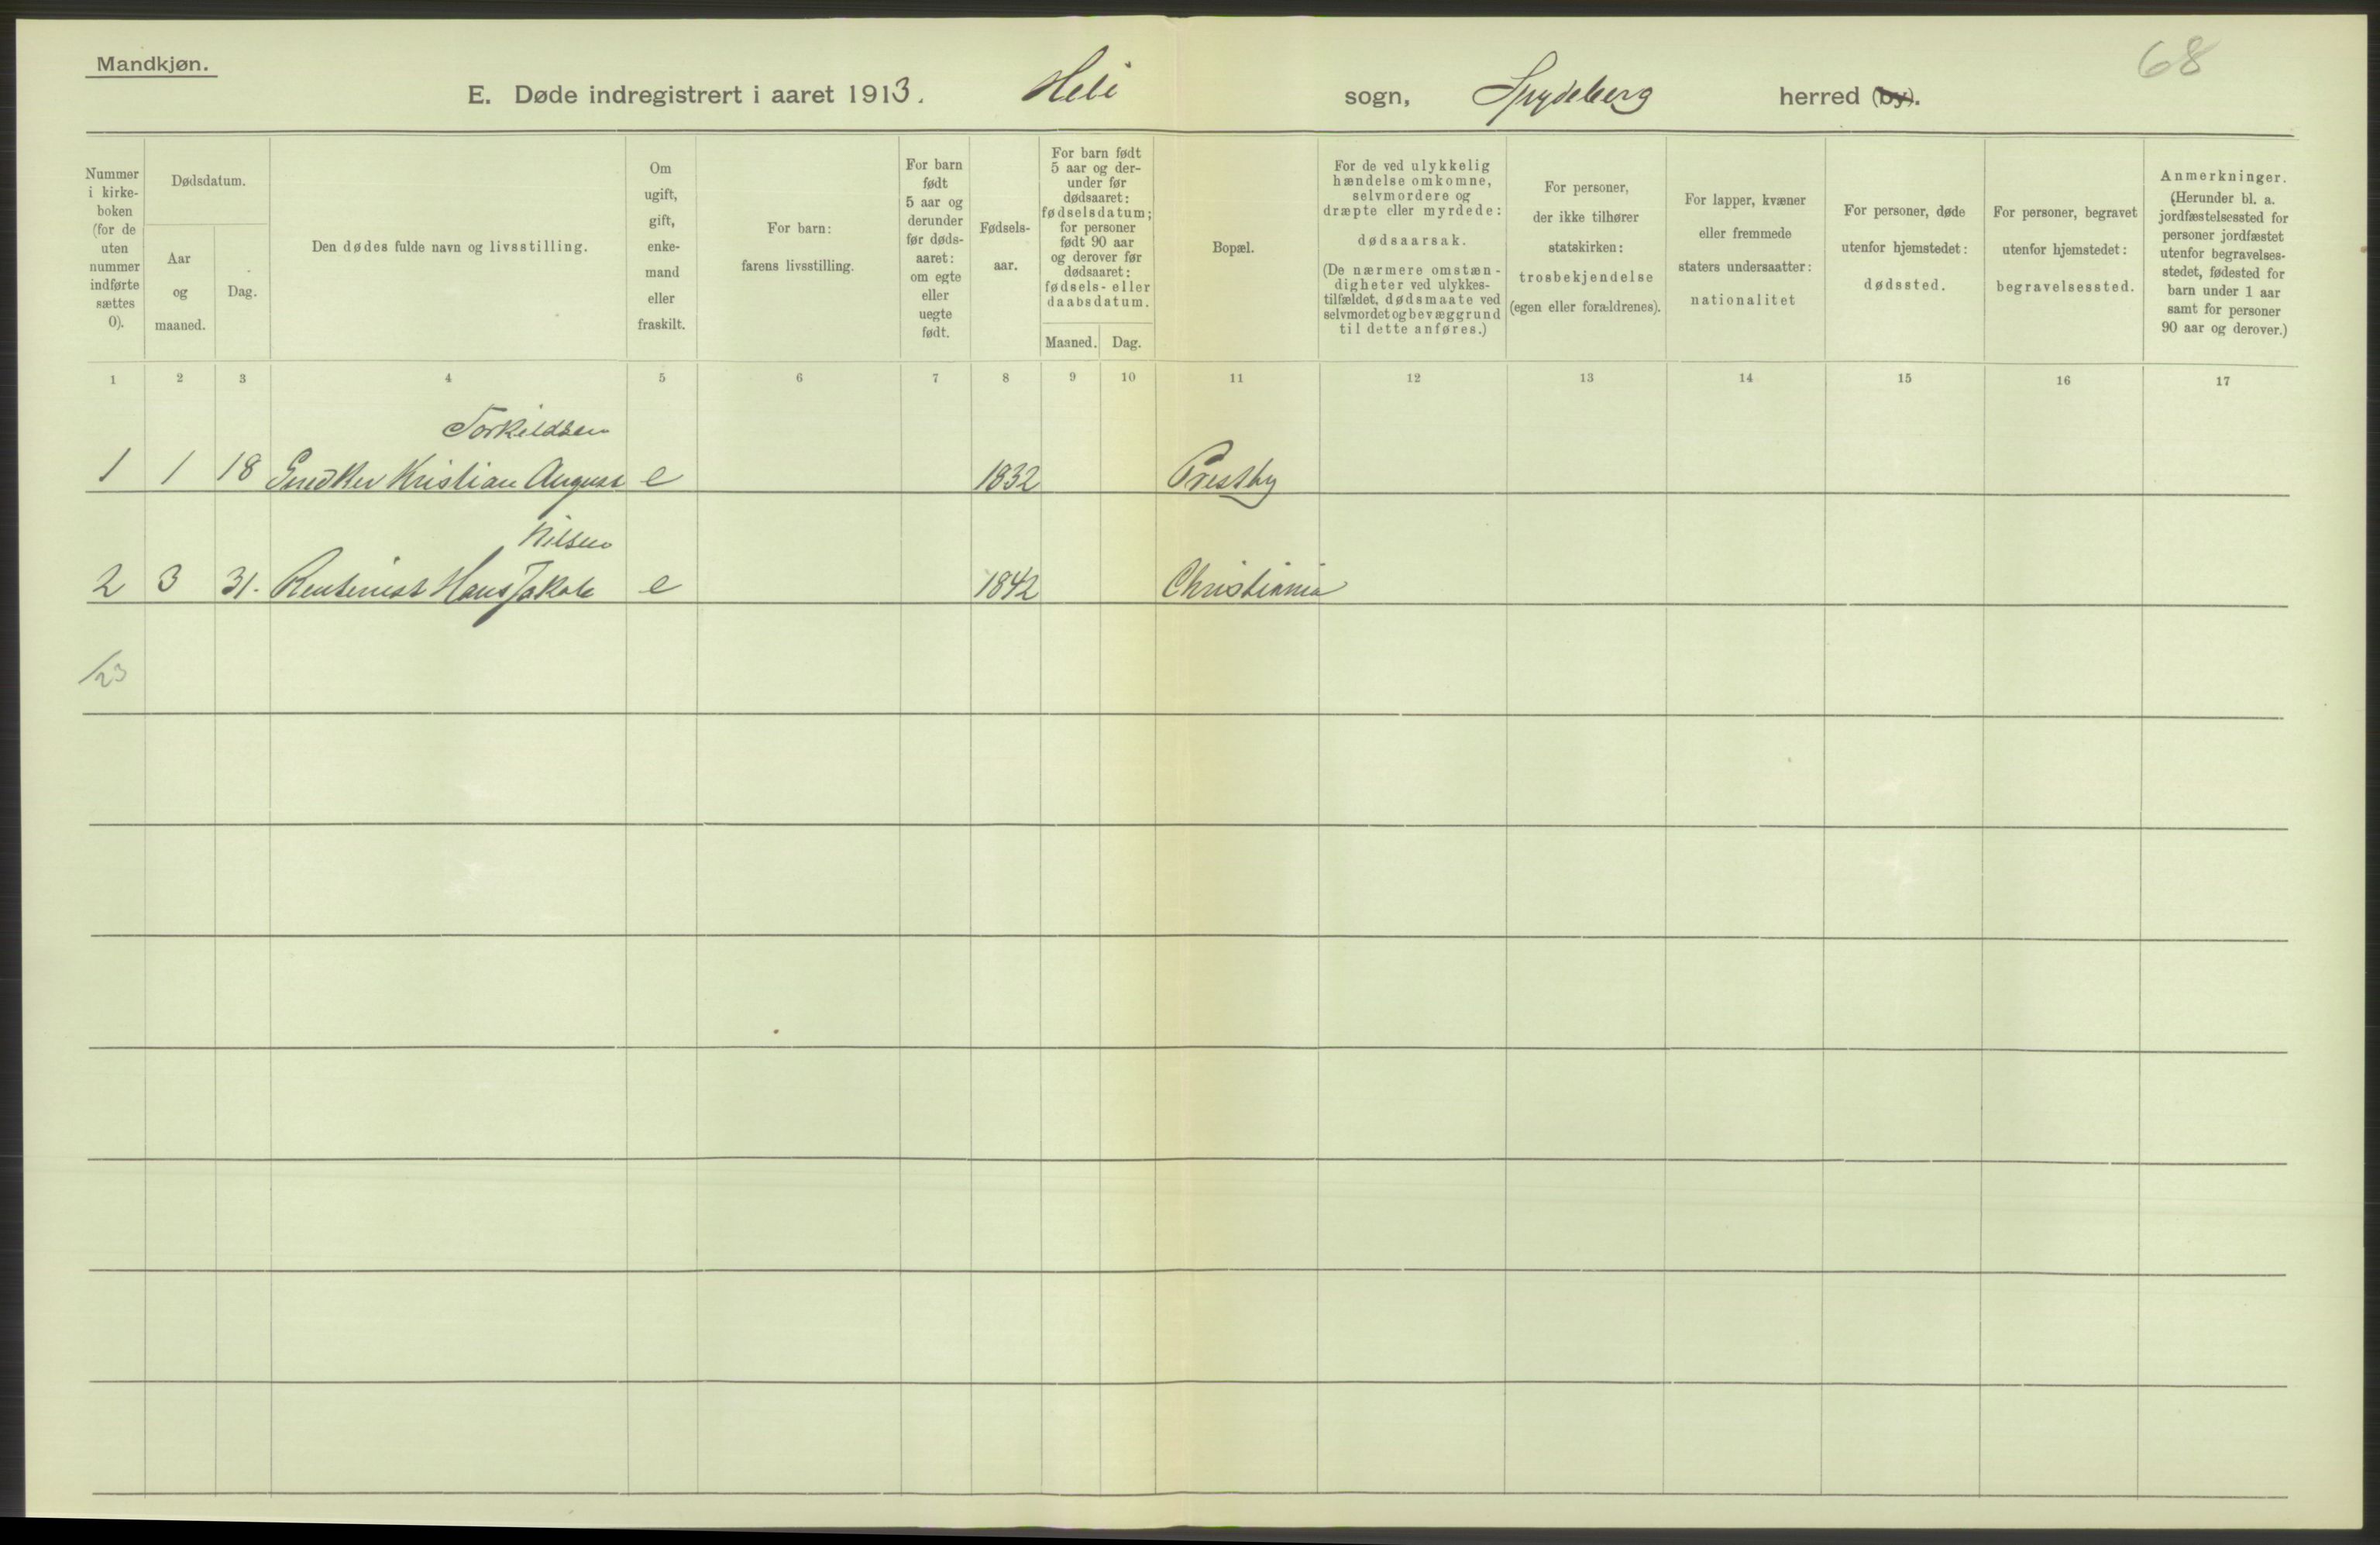 Mandkjøn.
68
E. Døde indregistrert i aaret 1913. Heli sogn, Spydeberg herred (by).
Nummer i kirke-boken (for de uten nummer indførte sættes 0).
Dødsdatum.
Aar og maaned.
Dag.
Den dødes fulde navn og livsstilling.
Om ugift, gift, enke-mand eller fraskilt.
For barn: farens livsstilling.
For barn født 5 aar og derunder før døds-aaret: om egte eller uegte født.
Fødsels-aar.
For barn født 5 aar og der-under før dødsaaret: fødselsdatum; for personer født 90 aar og derover før dødsaaret: fødsels- eller daabsdatum.
Maaned. Dag.
Bopæl.
For de ved ulykkelig hændelse omkomne, selvmordere og dræpte eller myrdede: dødsaarsak. (De nærmere omstæn-digheter ved ulykkes-tilfældet, dødsmaate ved selvmordet og bevæggrund til dette anføres.)
For personer, der ikke tilhører statskirken: trosbekjendelse (egen eller forældrenes).
For lapper, kvæner eller fremmede staters undersaatter: nationalitet
For personer, døde utenfor hjemstedet: dødssted.
For personer, begravet utenfor hjemstedet: begravelsessted.
Anmerkninger. (Herunder bl. a. jordfæstelsessted for personer jordfæstet utenfor begravelses-stedet, fødested for barn under 1 aar samt for personer 90 aar og derover.)
1 2 3 4 5 6 7 8 9 10 11 12 13 14 15 16 17
Torkildsen
1 1 18 Snedker Kristian August e 1832 Prestby
Nilsen
2 3 31. Rentenist Hans Jakob e 1842 Christiania